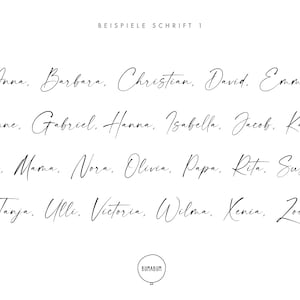 BEISPIELE SCHRIFT 1
Anna, Barbara, Christian, David, Emm
ne, Gabriel, Hanna, Isabella, Jacob, K
, Mama, Nora, Olivia, Papa, Rita, Su
Tanja, Ulli, Victoria, Wilma, Xenia, Zo
BUMABUM